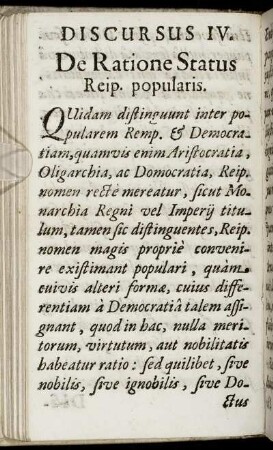 DISCURSUS IV.
De Ratione Status
Reip. popularis.
QUidam distinguunt inter po-
pularem Remp. & Democra-
tiam, quamvis enim Aristocratia,
Oligarchia, ac Domocratia, Reip.
nomen rectè mereatur, sicut Mo-
narchia Regni vel Imperij titu-
lum, tamen sic distinguentes, Reip.
nomen magis propriè conveni-
re existimant populari, quàm
cuivis alteri formæ, cuius diffe-
rentiam à Democratiâ talem assi-
gnant, quod in hac, nulla meri-
torum, virtutum, aut nobilitatis
habeatur ratio: sed quilibet, sive
nobilis, sive ignobilis, sive Do-
ctus